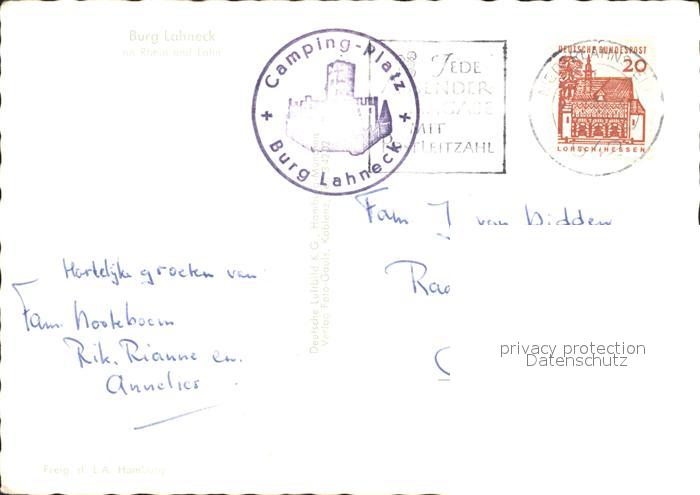 Burg Lahneck
an Rhein und Lahn
Camping-Platz
+ Burg Lahneck +
JEDE
MIT
POSTLEITZAHL
DEUTSCHE BUNDESPOST
20
LORSCH/HESSEN
Fam J van Didden
Hartelijke groeten van
Fam. Nooteboom
Rik, Rianne en
Annelies
Deutsche Luftbild K.G., Hamburg
Verlag Foto-Gauls, Koblenz
privacy protection
Datenschutz
Freig. d. L.A. Hamburg